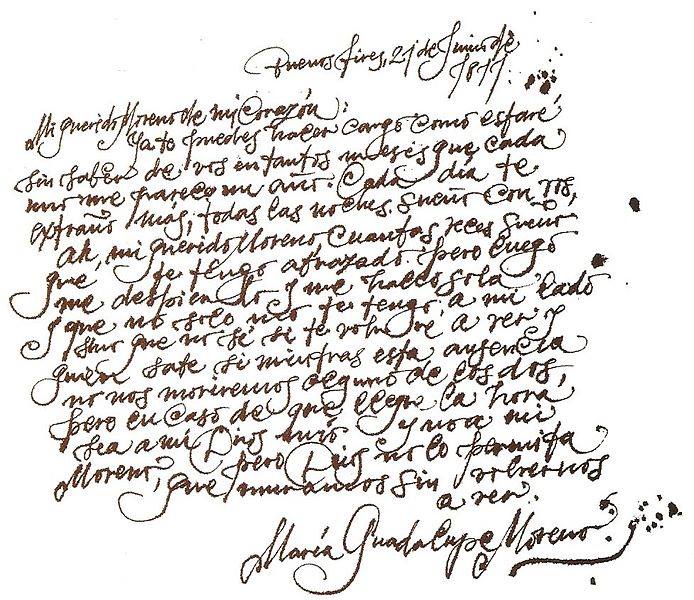 Buenos Aires, 21 de Junio de
1811
Mi querido Moreno de mi Corazón:
Ya te puedes hacer cargo como estaré
sin saber de vos en tantos meses que cada
uno me parece un año. Cada día te
extraño más, todas las noches sueño con vos,
ah, mi querido Moreno, cuantas veces sueño
que te tengo abrazado pero luego
me despierto y me hallo sola
y que no solo no te tengo a mi lado
sino que no sé si te volveré a ver y
quién sabe si mientras esta ausencia
no nos moriremos alguno de los dos,
pero en caso de que llegue la hora
sea a mi Dios mío y no a mi
Moreno, pero Dios no lo permita
que muramos sin volvernos
a ver.
María Guadalupe Moreno.